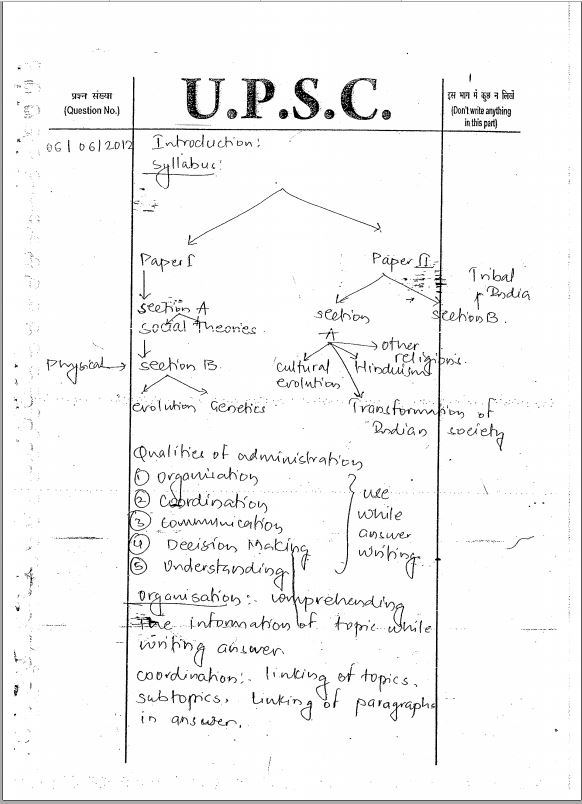 प्रश्न संख्या
(Question No.)
U.P.S.C.
इस भाग में कुछ न लिखें
(Don't write anything
in this part)
06/06/2012
Introduction:
Syllabus:
Paper I
Paper II
Tribal
India
section A
social theories
section
A
section B.
other
religions.
Hinduism
cultural
evolution
Physical
section B.
evolution Genetics
Transformation of
Indian society
Qualities of administration
① organisation
② coordination
③ communication
④ Decision Making
⑤ Understanding
use
while
answer
writing
organisation:- comprehending
The information of topic while
writing answer.
coordination:- linking of topics,
subtopics, linking of paragraphs
in answer.